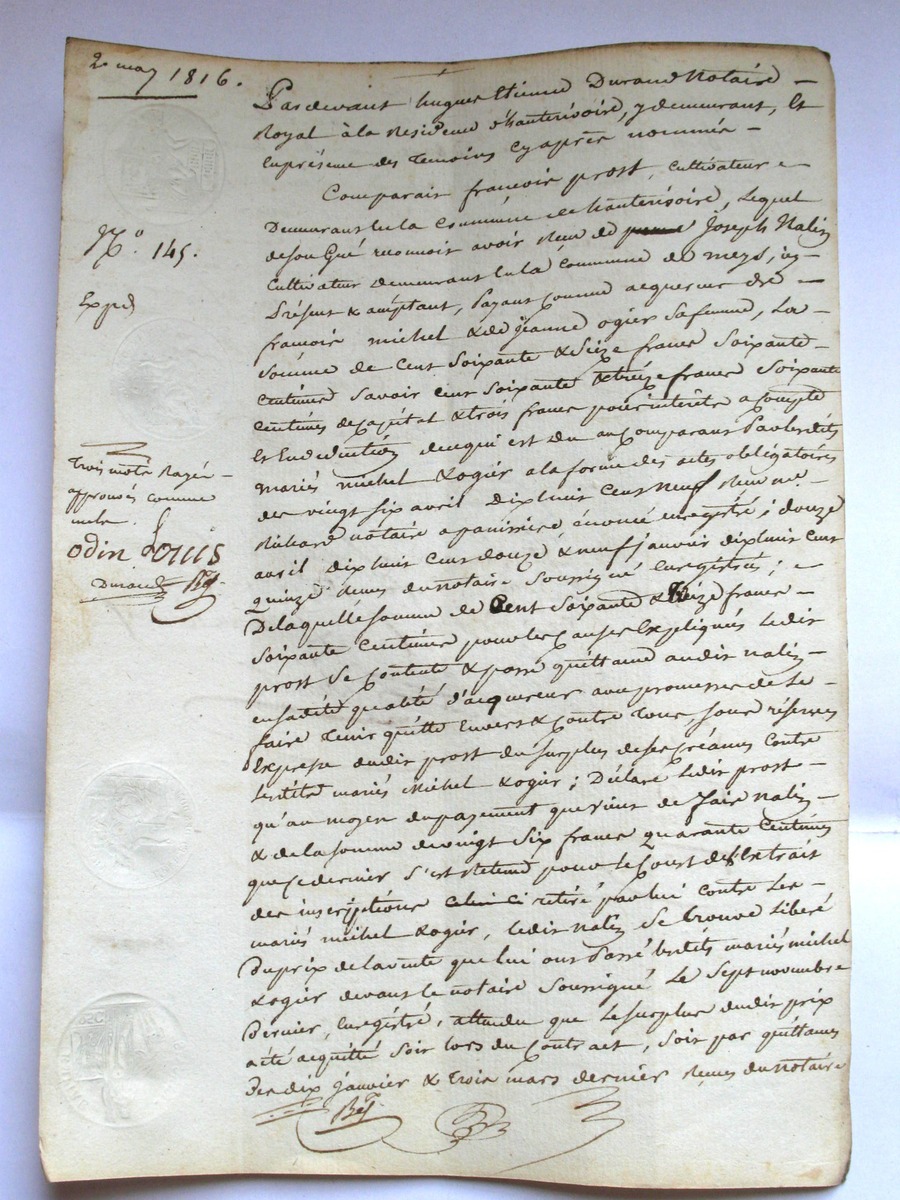 2 may 1816.
Pardevant hugues Etienne Durand Notaire
Royal à la Residence d'hauterivoire, y demeurant, Et
En présence des Temoins Cy après nommés
Comparait francois prost, Cultivateur
Demeurant En la Commune de hauterivoire, Lequel
de son Gré reconnoit avoir Reçu de Joseph Nalin
N.o 145.
Cultivateur demeurant En la Commune de meys, icy
Expd
Présent & acceptant, Payant Comme acquereur de
francois michel & de jeanne ogier Sa femme, La
Somme de Cent Soixante & Seize francs Soixante
Centimes Savoir Cent Soixante & treize francs Soixante
Centimes de Capital & trois francs pour intérêts a Compte
Et En deduction de ce qui est Du au Comparant Par lesdits
mariés michel & ogier a la forme des actes obligatoires
Trois mots Rayés
approuvés comme
nuls.
odin Louis
Durand
des vingt Six avril Dix huit Cent Neuf Reçu me
Richard notaire a panissiere énoncé enregistré; douze
avril dix huit Cent douze & neuf janvier dix huit Cent
quinze Reçus du notaire Soussigné Enregistrés;
De laquelle somme de Cent Soixante & Seize francs
Soixante Centimes pour les Causes Expliquées Ledit
prost Se Contente & passe quittance audit nalin
en sadite qualité d'acquereur avec promesses de Le
faire Tenir quitte Envers & Contre Tous, sous réserves
Expresse audit prost du surplus de ses Créances Contre
Lesdits mariés Michel & ogier; Déclare Ledit prost
qu'au moyen du payement que vient de faire nalin
& de la somme de vingt Six francs quarante Centimes
que Ce dernier s'est Retenu pour le Cout de l'Extrait
des inscriptions Celui Ci retiré par lui Contre Les
mariés michel & ogier, ledit nalin Se trouve Liberé
Du prix de la vente que lui ont Passé lesdits mariés michel
& ogier devant le notaire Soussigné Le Sept novembre
Dernier, Enregistré, attendu que Le surplus dudit prix
a été acquitté Soit lors du Contract, Soit par quittances
Des dix janvier & Trois mars dernier Reçues du notaire